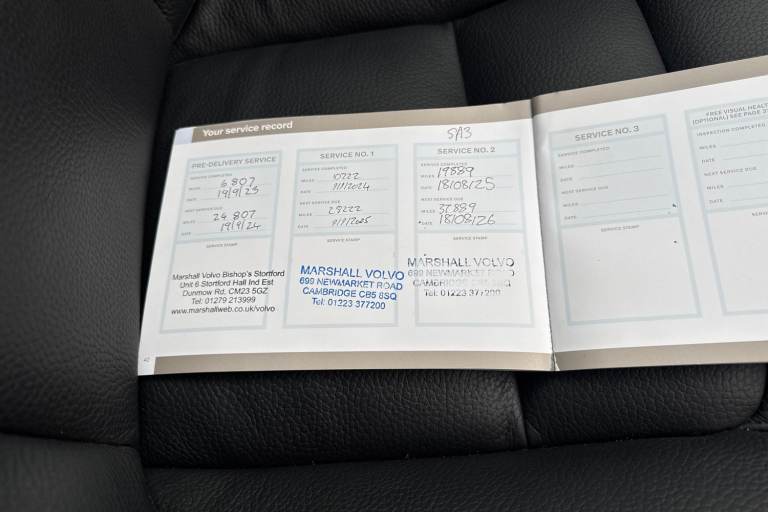 Your service record
PRE-DELIVERY SERVICE
SERVICE COMPLETED
MILES 6 807
DATE 19/9/23
NEXT SERVICE DUE
MILES 24 807
DATE 19/9/24
SERVICE STAMP
Marshall Volvo Bishop's Stortford
Unit 6 Stortford Hall Ind Est
Dunmow Rd, CM23 5GZ
Tel: 01279 213999
www.marshallweb.co.uk/volvo
SERVICE NO. 1
SERVICE COMPLETED
MILES 10222
DATE 9/7/2024
NEXT SERVICE DUE
MILES 28222
DATE 9/7/2025
SERVICE STAMP
MARSHALL VOLVO
699 NEWMARKET ROAD
CAMBRIDGE CB5 8SQ
Tel: 01223 377200
SA3
SERVICE NO. 2
SERVICE COMPLETED
MILES 19889
DATE 18/08/25
NEXT SERVICE DUE
MILES 37889
DATE 18/08/26
SERVICE STAMP
MARSHALL VOLVO
699 NEWMARKET ROAD
CAMBRIDGE CB5 8SQ
Tel: 01223 377200
SERVICE NO. 3
SERVICE COMPLETED
MILES
DATE
NEXT SERVICE DUE
MILES
DATE
SERVICE STAMP
FREE VISUAL HEALT
(OPTIONAL) SEE PAGE 3
INSPECTION COMPLETED
MILES
DATE
NEXT SERVICE DUE
MILES
DATE
SERVICE